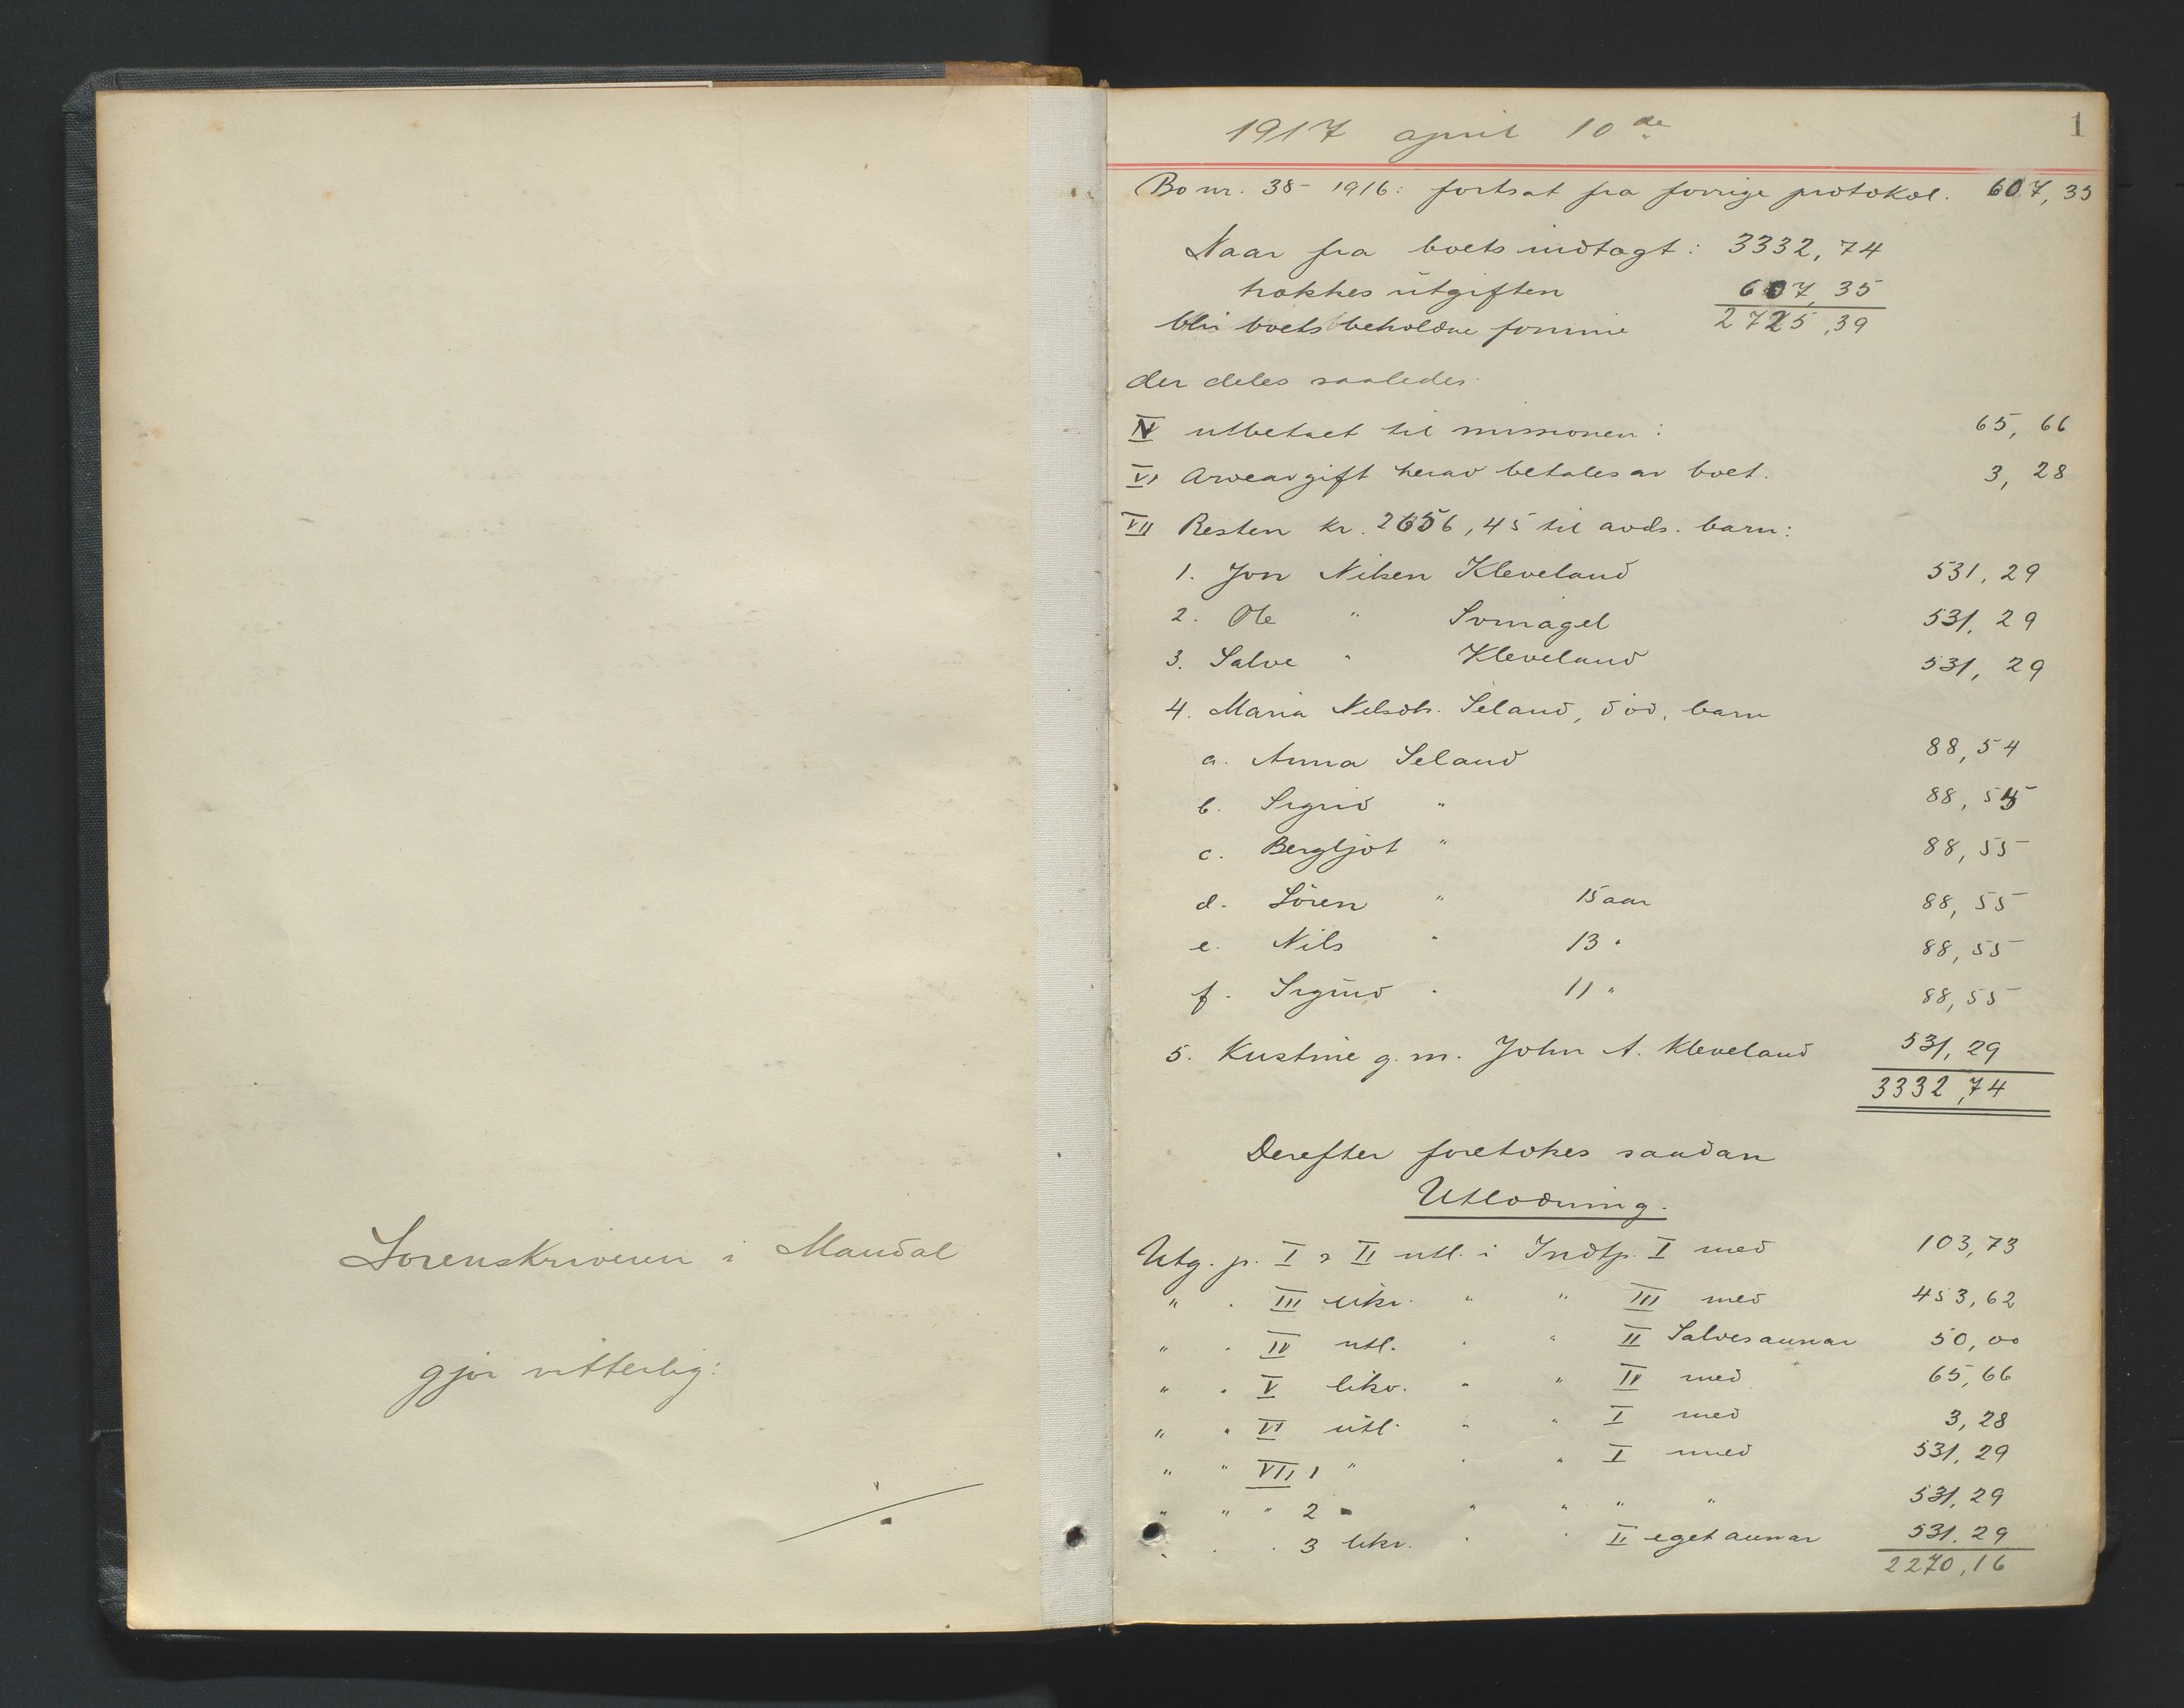 Sorenskriveren i Mandal
gjør vitterlig:
1917 april 10de
1
Bo nr. 38 - 1916: fortsat fra forrige protokol. 607,35
Naar fra boets indtægt: 3332,74
trækkes utgiften 607,35
blir boets beholdne formue 2725,39
der deles saaledes:
V utbetalt til missionen: 65,66
VI Arveavgift herav betales av boet. 3,28
VII Resten kr. 2656,45 til avds. barn:
1. Jon Nilsen Kleveland 531,29
2. Ole " 531,29
3. Salve " Kleveland 531,29
4. Maria Nilsdtr. Seland, död, barn
a. Anna Seland 88,54
b. Sigrid " 88,55
c. Bergljot " 88,55
d. Sören " 15 aar 88,55
e. Nils " 13 " 88,55
f. Sigurd " 11 " 88,55
5. Kristine g. m. John A. Kleveland 531,29
3332,74
Derefter foretokes saadan
Utlodning.
Utg. p. I & II utl. i Indtp. I med 103,73
" " III likv. " " III med 453,62
" " IV utl. " " II Salvesaunar 50,00
" " V likv. " " IV med 65,66
" " VI utl. " " I med 3,28
" " VII 1 " " " I med 531,29
" " " 2 " " " " " 531,29
" " " 3 likv. " " II eget aunar 531,29
2270,16